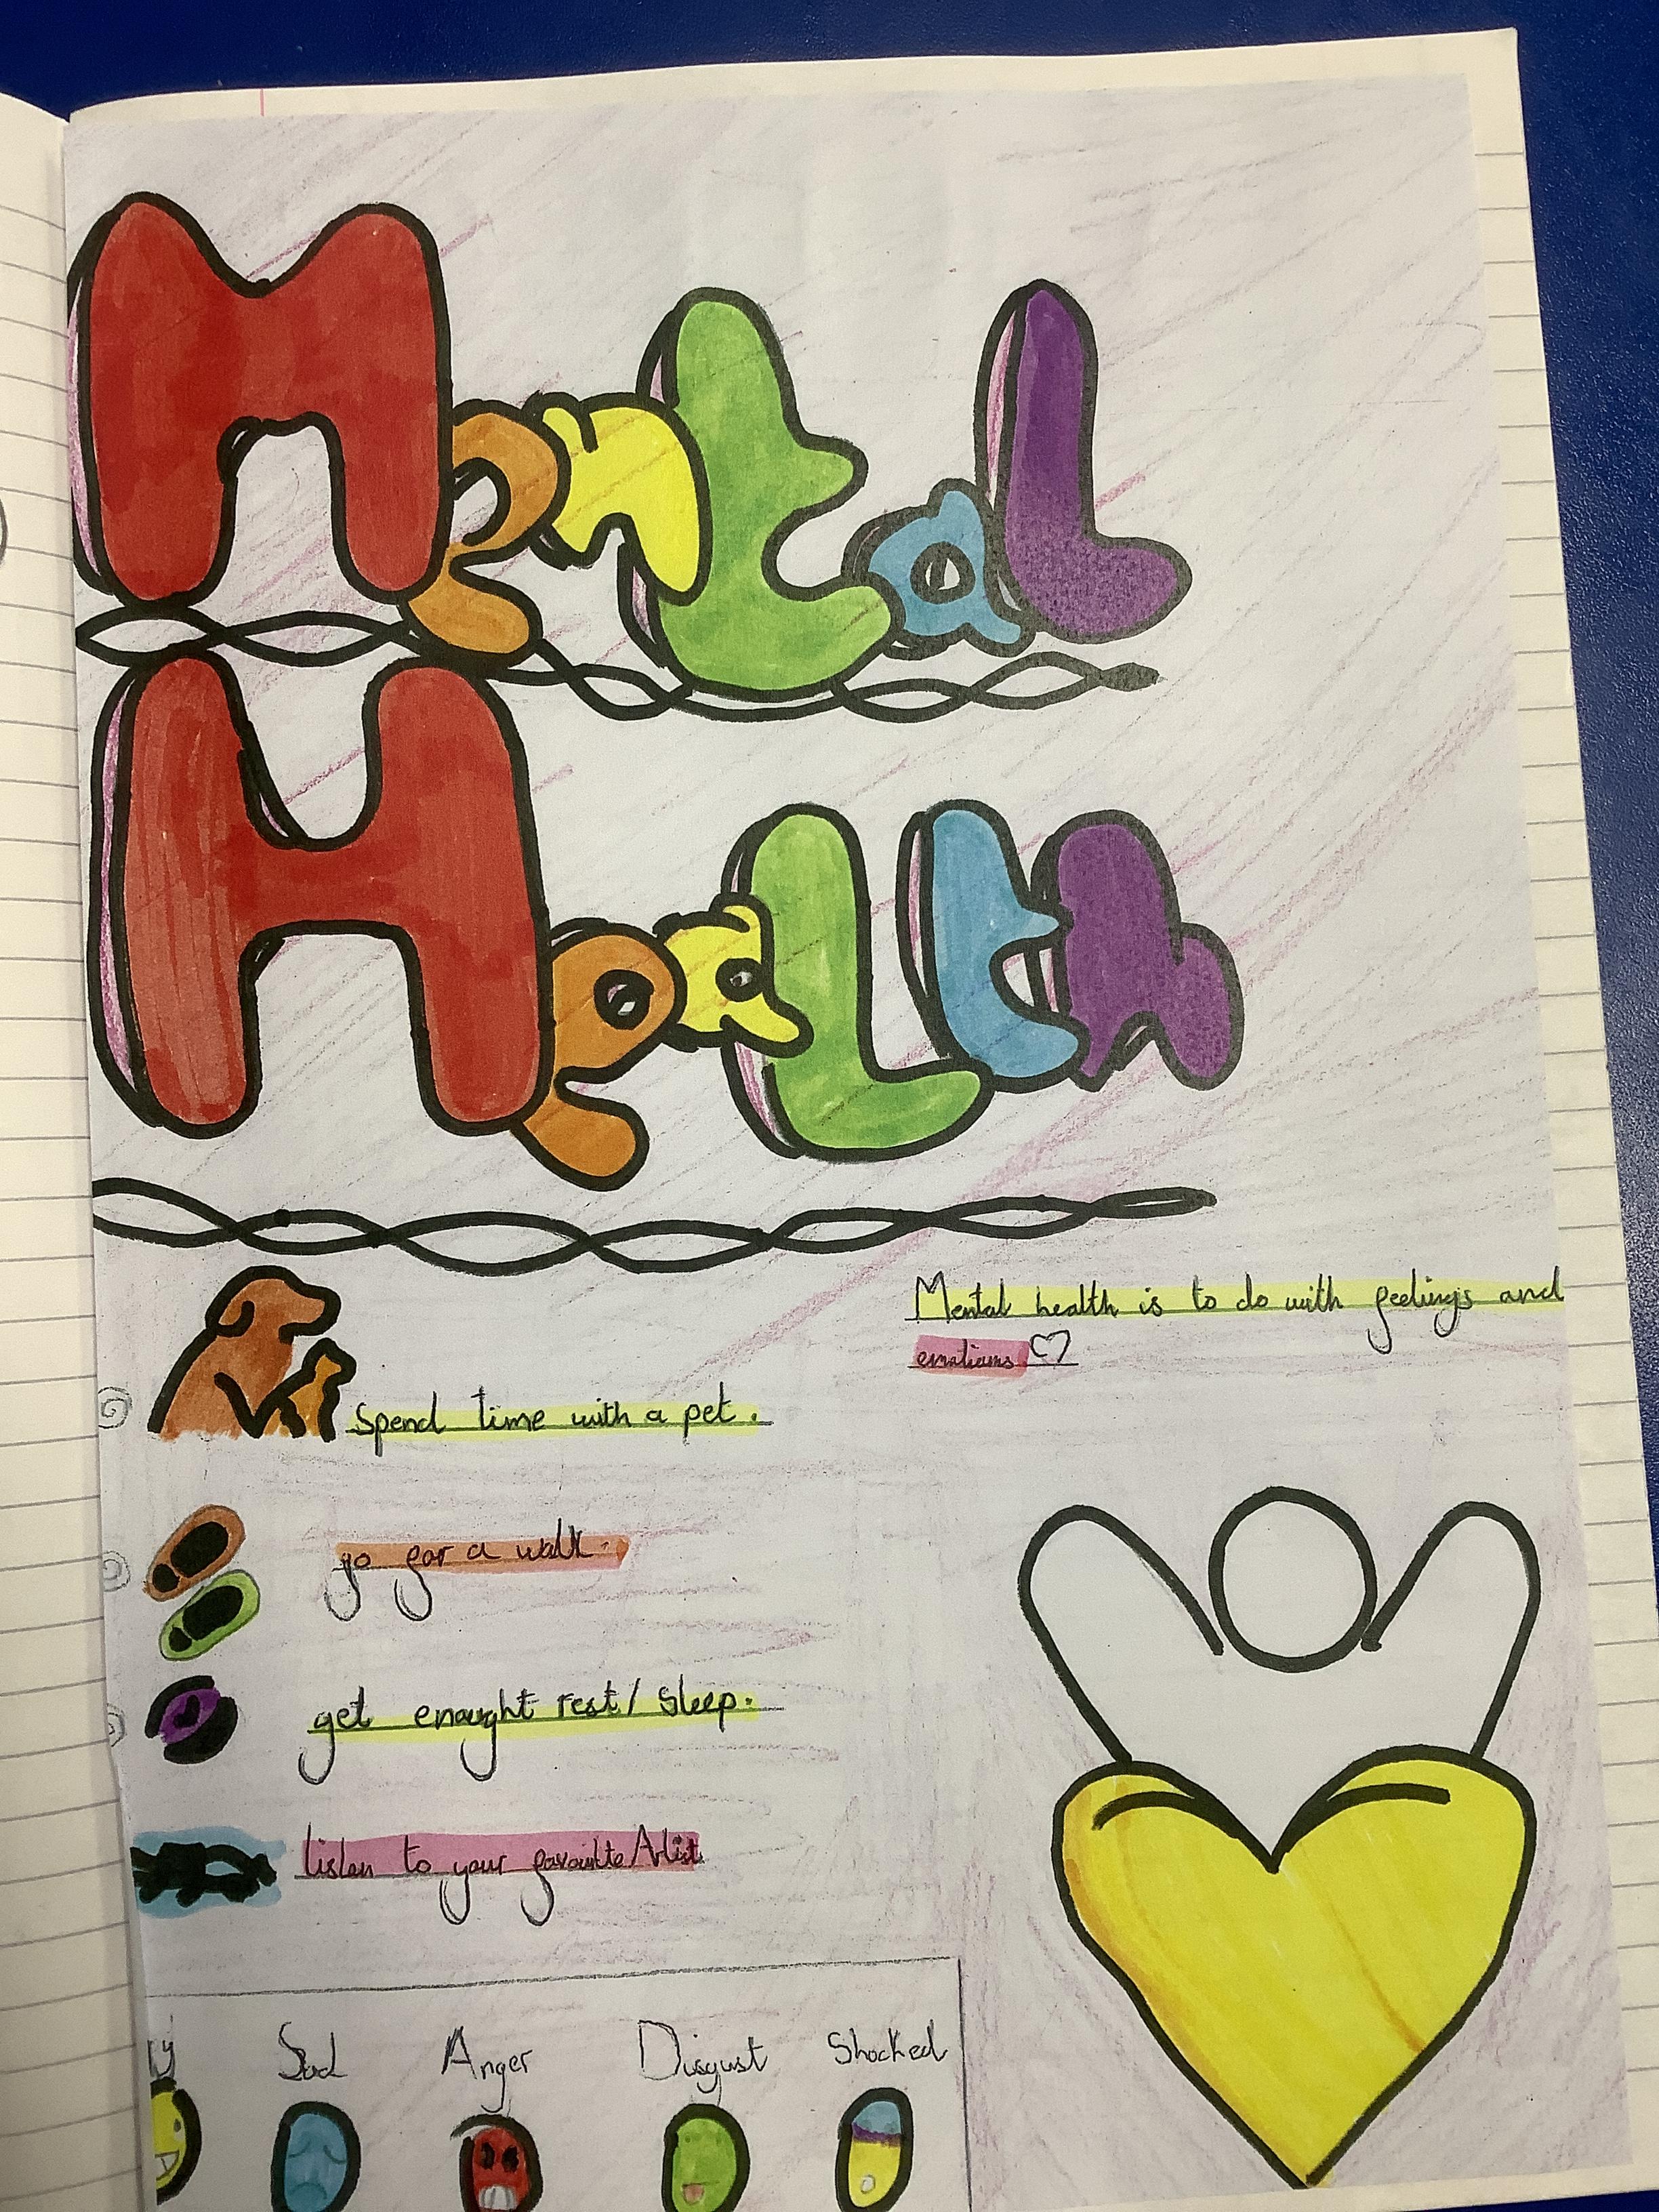 Mental
Health
Mental health is to do with feelings and
emotions
Spend time with a pet.
go for a walk.
get enought rest/sleep.
listen to your favouitte Artist
Sad Anger Disgust Shocked